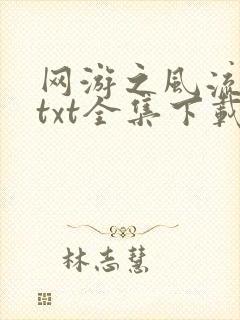 网游之风流
txt全集下载
林志慧